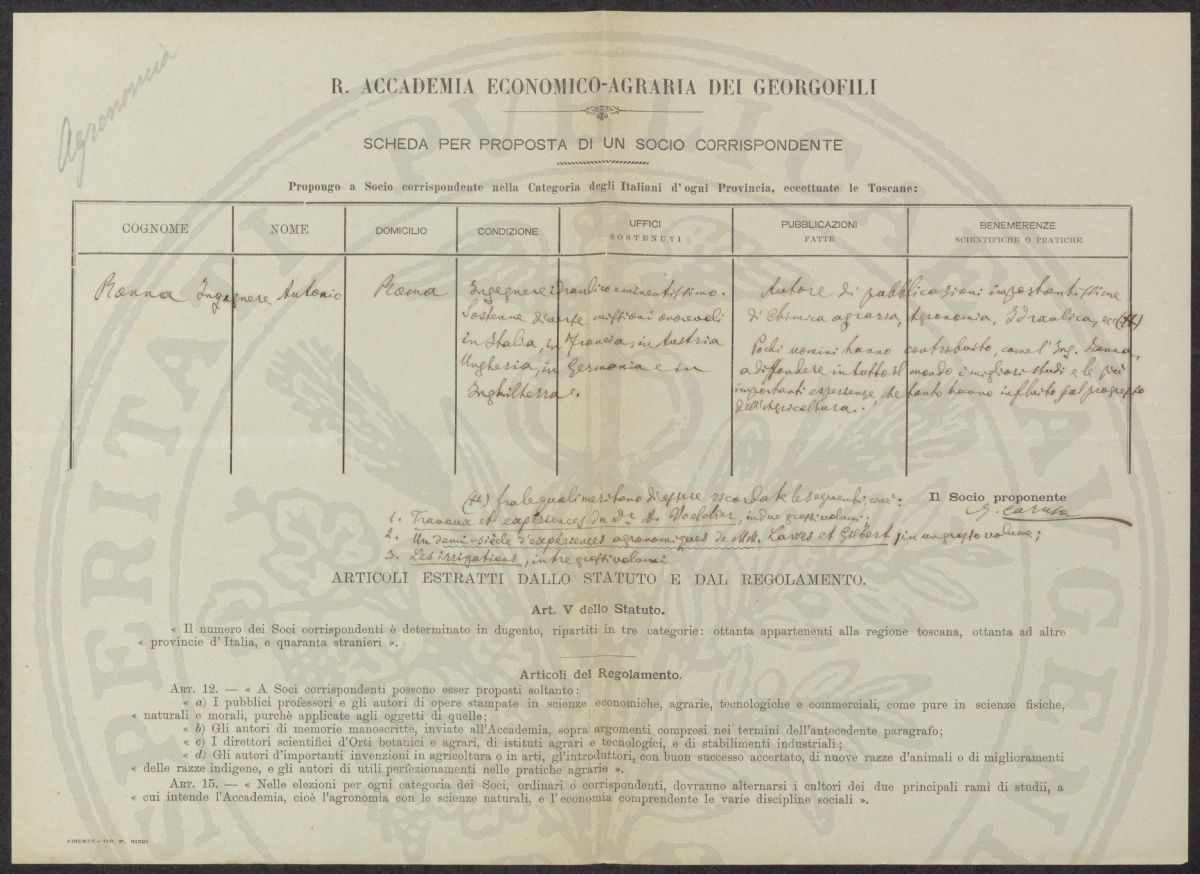 Agronomia
R. ACCADEMIA ECONOMICO-AGRARIA DEI GEORGOFILI
SCHEDA PER PROPOSTA DI UN SOCIO CORRISPONDENTE
Propongo a Socio corrispondente nella Categoria degli Italiani d'ogni Provincia, eccettuate le Toscane:
COGNOME NOME DOMICILIO CONDIZIONE UFFICI SOSTENUTI PUBBLICAZIONI FATTE BENEMERENZE SCIENTIFICHE O PRATICHE
Ronna Ingegnere Antonio Roma
Ingegnere idraulico eminentissimo.
Sostenne diverse missioni onorevoli
in Italia, in Francia, in Austria
Ungheria, in Germania e in
Inghilterra.
Autore di pubblicazioni importantissime
di Chimica agraria, Agronomia, Idraulica, ecc (#)
Pochi uomini hanno contribuito, come l'Ing. Ronna,
a diffondere in tutto il mondo i migliori studi e le più
importanti esperienze, che tanto hanno influito sul progresso
dell'Agricoltura.
(#) fra le quali meritano di essere ricordate le seguenti, cioè:
1. Travaux et expériences du Dr. A. Voelcker, in due grossi volumi;
2. Un demi-siècle d'expériences agronomiques de MM. Lawes et Gilbert, in un grosso volume;
3. Les irrigations, in tre grossi volumi
Il Socio proponente
G. Caruso
ARTICOLI ESTRATTI DALLO STATUTO E DAL REGOLAMENTO.
Art. V dello Statuto.
« Il numero dei Soci corrispondenti è determinato in dugento, ripartiti in tre categorie: ottanta appartenenti alla regione toscana, ottanta ad altre
« provincie d'Italia, e quaranta stranieri ».
Articoli del Regolamento.
ART. 12. — « A Soci corrispondenti possono esser proposti soltanto:
« a) I pubblici professori e gli autori di opere stampate in scienze economiche, agrarie, tecnologiche e commerciali, come pure in scienze fisiche,
« naturali e morali, purchè applicate agli oggetti di quelle;
« b) Gli autori di memorie manoscritte, inviate all'Accademia, sopra argomenti compresi nei termini dell'antecedente paragrafo;
« c) I direttori scientifici d'Orti botanici e agrari, di istituti agrari e tecnologici, e di stabilimenti industriali;
« d) Gli autori d'importanti invenzioni in agricoltura o in arti, gl'introduttori, con buon successo accertato, di nuove razze d'animali o di miglioramenti
« delle razze indigene, e gli autori di utili perfezionamenti nelle pratiche agrarie ».
ART. 15. — « Nelle elezioni per ogni categoria dei Soci, ordinari o corrispondenti, dovranno alternarsi i cultori dei due principali rami di studii, a
« cui intende l'Accademia, cioè l'agronomia con le scienze naturali, e l'economia comprendente le varie discipline sociali ».
FIRENZE - TIP. M. RICCI
PROSPERITATI PUBLICAE AUGENDAE